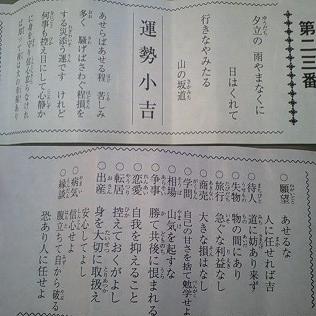 第二三番
夕立の 雨やまなくに
日はくれて
行きなやみたる
山の坂道
運勢小吉
あせらばあせる程 苦しみ
多く 騒げばさわぐ程損を
する災添う運です けれど
何事も控え目にして心静か
に身を守り
○願望 あせるな
人に任せれば吉
○待人 道に妨あり来ず
○失物 物の間にあり
○旅行 急ぐな利益なし
○商売 大きな損はなし
○学問 自己の甘さを捨て勉学せよ
○相場 山気を起すな
○争事 勝て共後に恨まれる
○恋愛 自我を抑えること
○転居 控えておくがよし
○出産 身を大切に取扱え
安心してよし
○病気 信心せよ
○縁談 腹立ちて自から破る
恐あり人に任せよ